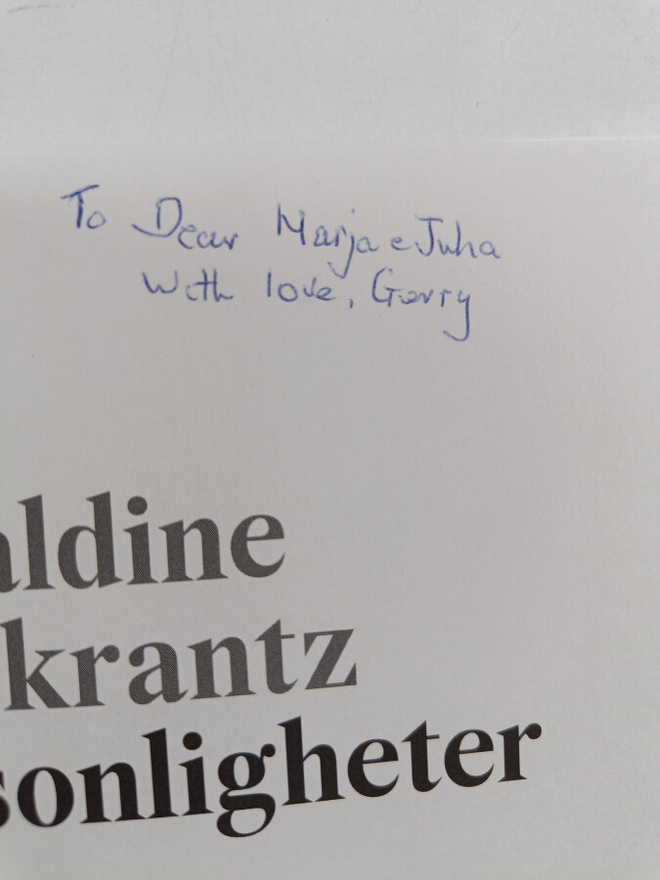 To Dear Marja e Juha
With love, Gerry
aldine
krantz
sonligheter